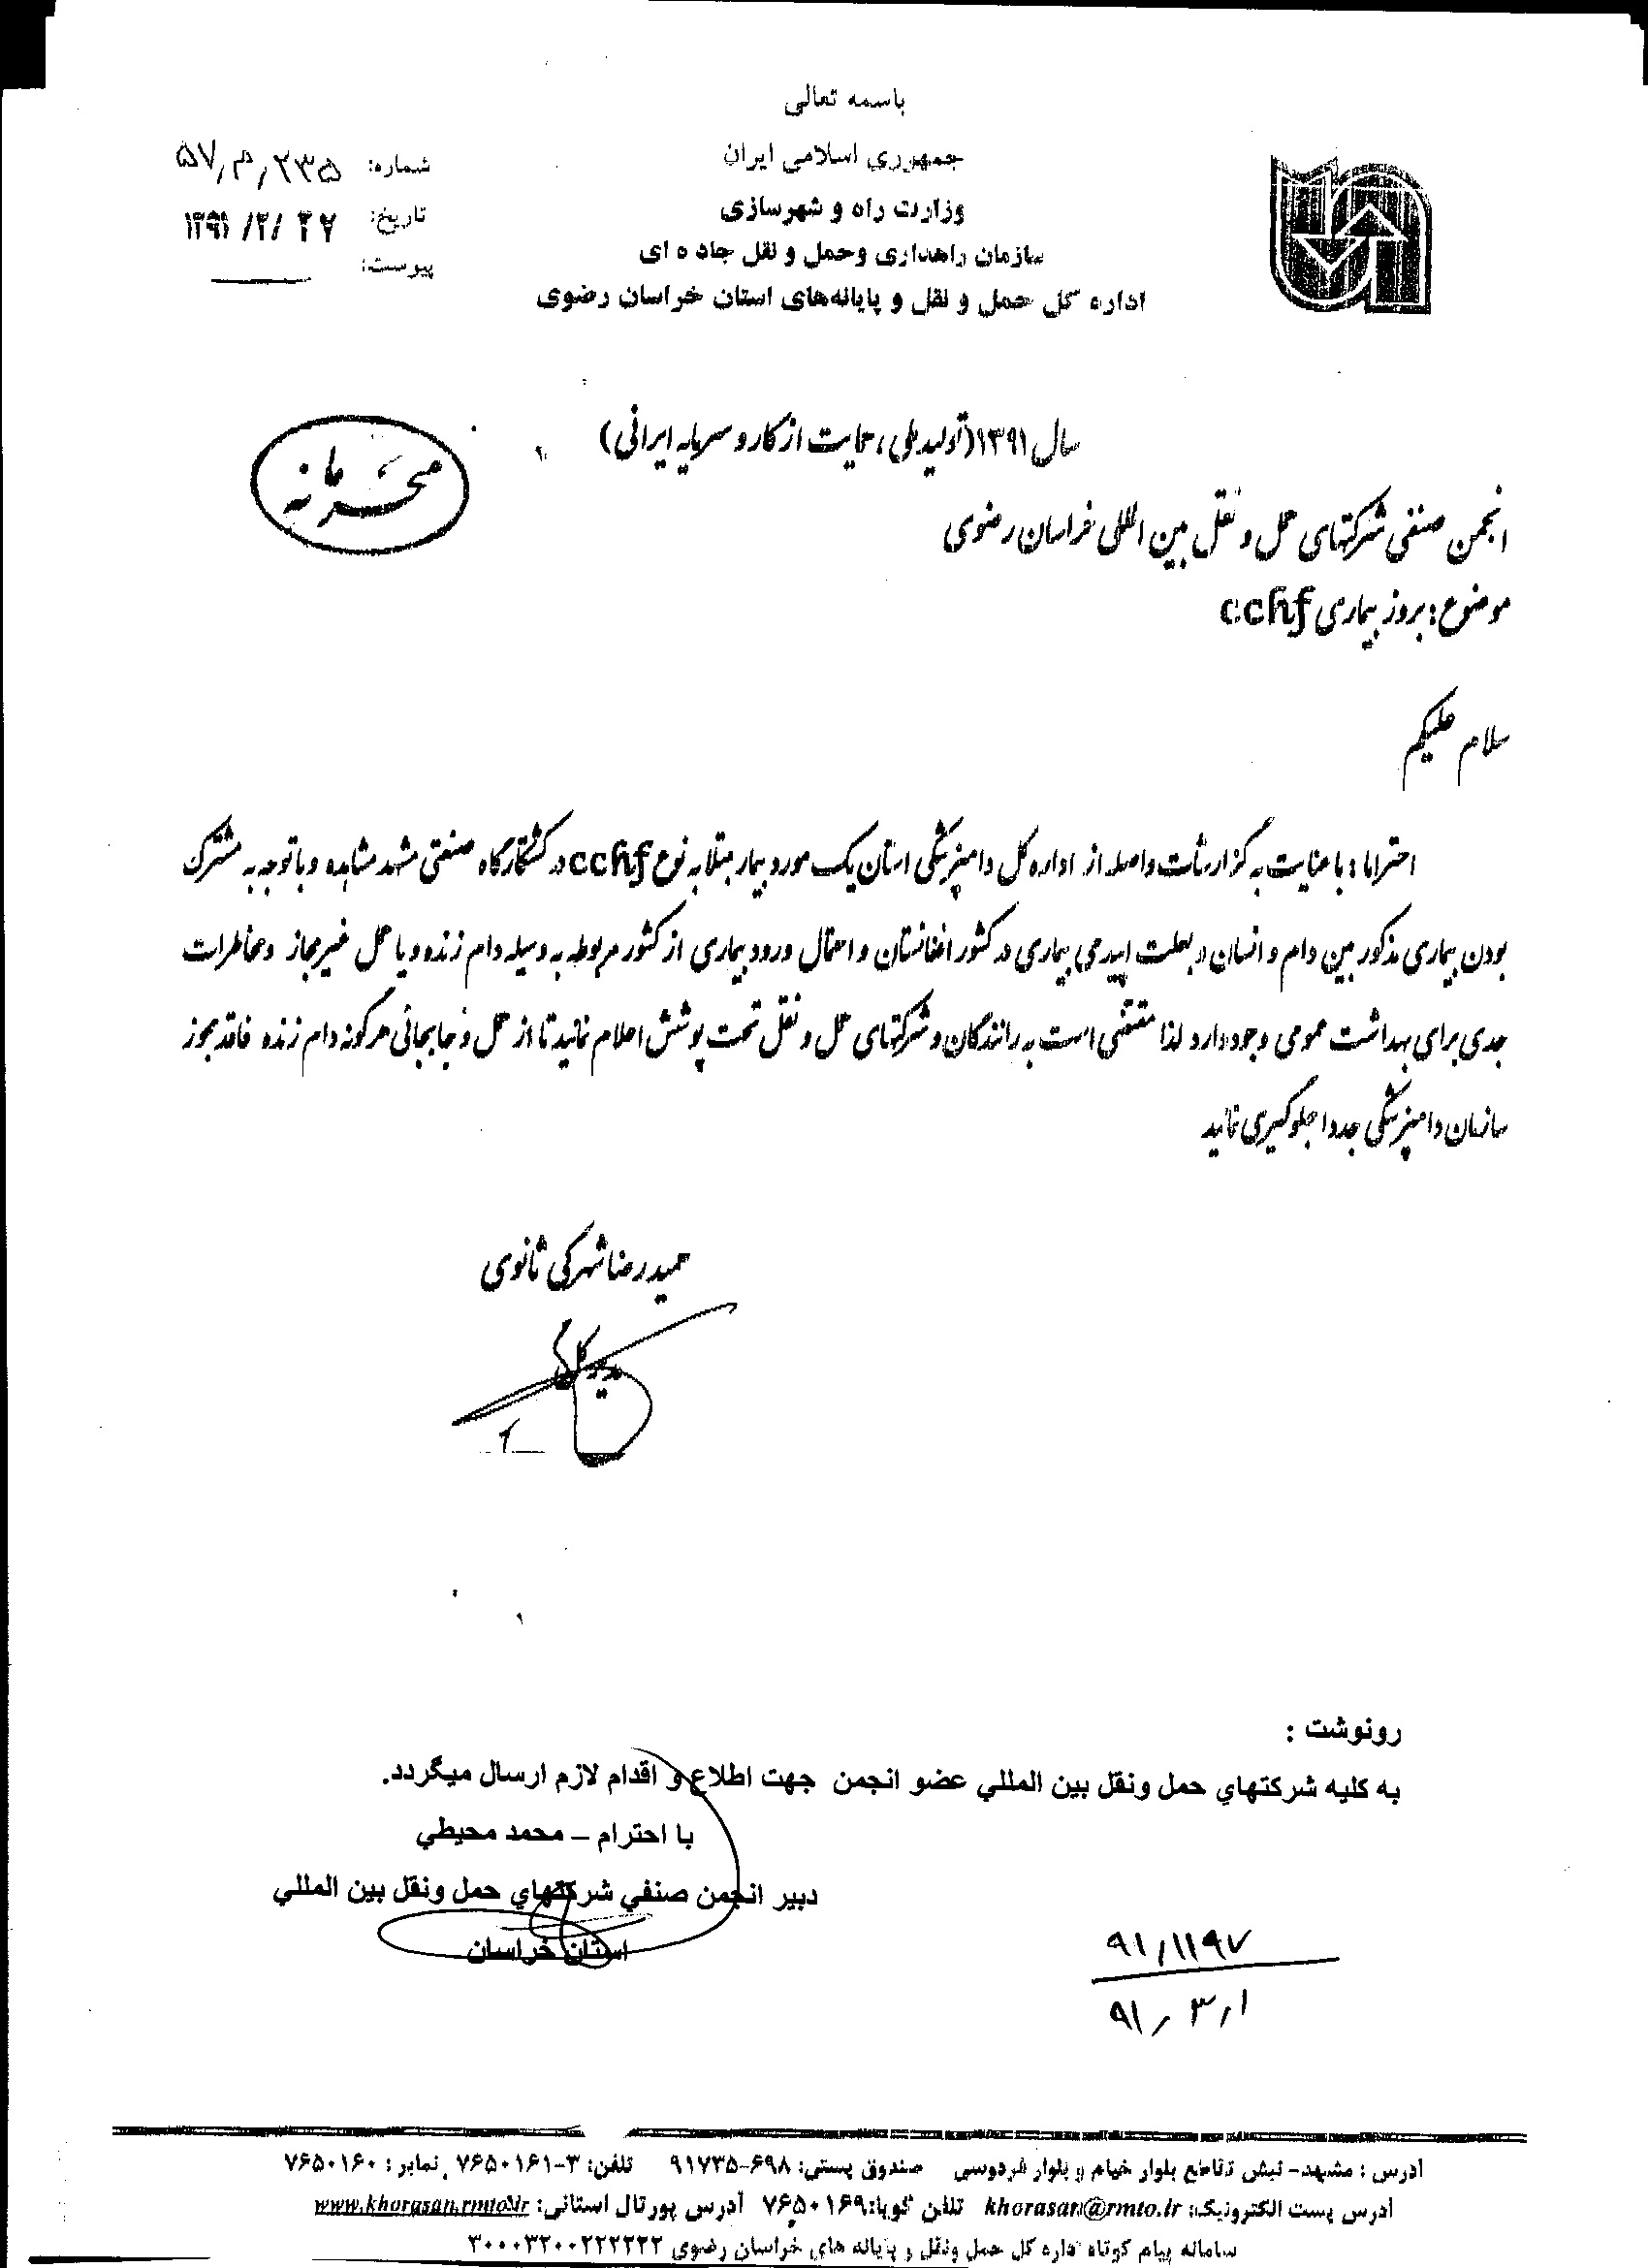 باسمه تعالی
جمهوری اسلامی ایران
وزارت راه و شهرسازی
سازمان راهداری وحمل و نقل جاده ای
اداره کل حمل و نقل و پایانه‌های استان خراسان رضوی
شماره: ۵۷٫م٫۲۳۵
تاریخ: ۱۳۹۱/۲/۲۷
پیوست:
محرمانه
سال ۱۳۹۱(تولید ملی، حمایت از کار و سرمایه ایرانی)
انجمن صنفی شرکتهای حمل و نقل بین المللی خراسان رضوی
موضوع: بروز بیماری cchf
سلام علیکم
احتراما ؛ با عنایت به گزارشات واصله از اداره کل دامپزشکی استان یک مورد بیمار مبتلا به نوع cchf در کشتارگاه صنعتی مشهد مشاهده و با توجه به مشترک
بودن بیماری مذکور بین دام و انسان و بعلت اپیدمی بیماری در کشور افغانستان و احتمال ورود بیماری از کشور مربوطه به وسیله دام زنده و یا حمل غیرمجاز و مخاطرات
جدی برای بهداشت عمومی وجود دارد لذا مقتضی است به رانندگان و شرکتهای حمل و نقل تحت پوشش اعلام نمائید تا از حمل و جابجائی هرگونه دام زنده فاقد مجوز
سازمان دامپزشکی جدا جلوگیری نمائید
حمید رضا شهرکی ثانوی
مدیر کل
رونوشت :
به كليه شركتهاي حمل ونقل بين المللي عضو انجمن جهت اطلاع و اقدام لازم ارسال ميگردد.
با احترام – محمد محيطي
دبير انجمن صنفي شركتهاي حمل ونقل بين المللي
استان خراسان
۹۱/۱۱۹۷
۹۱٫۳٫۱
آدرس : مشهد- نبش تقاطع بلوار خیام و بلوار فردوسی صندوق پستی: ۶۹۸-۹۱۷۳۵ تلفن: ۳-۷۶۵۰۱۶۱ نمابر : ۷۶۵۰۱۶۰
آدرس پست الکترونیک: khorasan@rmto.ir تلفن گویا:۷۶۵۰۱۶۹ آدرس پورتال استانی: www.khorasan.rmto.ir
سامانه پیام کوتاه اداره کل حمل ونقل و پایانه های خراسان رضوی ۳۰۰۰۳۲۰۰۲۲۲۲۲۲